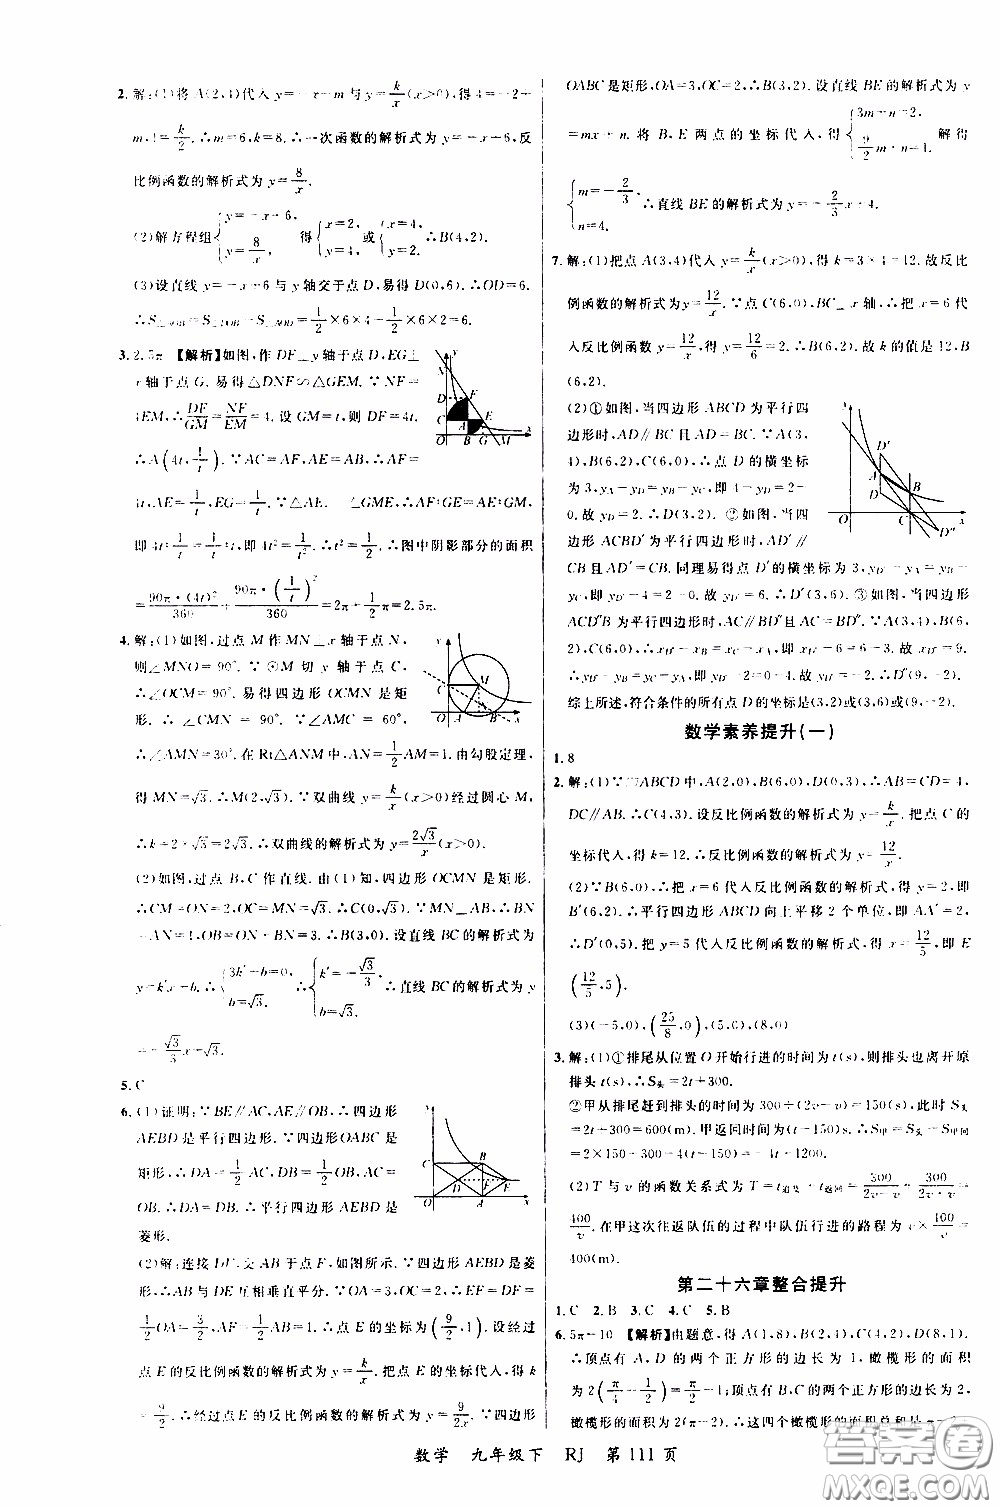 2. 解:(1)将 A(2,4)代入 y=-x+m 与 y=k/x(x>0),得 4=-2+
m,4=k/2.∴m=6,k=8.∴一次函数的解析式为 y=-x+6,反
比例函数的解析式为 y=8/x.
(2)解方程组{y=-x+6, y=8/x 得{x=2, y=4 或{x=4, y=2.∴B(4,2).
(3)设直线 y=-x+6 与 y 轴交于点 D,易得 D(0,6).∴OD=6.
∴S△AOB=S△DOB-S△AOD=1/2×6×4-1/2×6×2=6.
3. 2.5π 【解析】如图,作 DF⊥y 轴于点 D,EG⊥
x 轴于点 G. 易得△DNF∽△GEM.∵NF=
4EM,∴DF/GM=NF/EM=4. 设 GM=t,则 DF=4t.
∴A(4t,1/t).∵AC=AF,AE=AB,∴AF=
4t,AE=1/t,EG=1/t.∵△AEF∽△GME,∴AF:GE=AE:GM,
即 4t:1/t=1/t:t,即 4t²=1/t².∴t²=1/2.∴图中阴影部分的面积
=90π·(4t)²/360+90π·(1/t)²/360=2π+1/2π=2.5π.
4. 解:(1)如图,过点 M 作 MN⊥x 轴于点 N,
则∠MNO=90°.∵⊙M 切 y 轴于点 C,
∴∠OCM=90°. 易得四边形 OCMN 是矩
形.∴∠CMN=90°.∵∠AMC=60°.
∴∠AMN=30°. 在 Rt△ANM 中,AN=1/2AM=1. 由勾股定理,
得 MN=√3.∴M(2,√3).∵双曲线 y=k/x(x>0)经过圆心 M,
∴k=2×√3=2√3.∴双曲线的解析式为 y=2√3/x(x>0).
(2)如图,过点 B,C 作直线. 由(1)知,四边形 OCMN 是矩形.
∴CM=ON=2,OC=MN=√3.∴C(0,√3).∵MN⊥AB,∴BN
=AN=1,OB=ON+BN=3.∴B(3,0). 设直线 BC 的解析式为
y=k'x+b.∴{3k'+b=0, b=√3.∴{k'=-√3/3, b=√3.∴直线 BC 的解析式为 y
=-√3/3x+√3.
5. C
6. (1)证明:∵BE∥AC,AE∥OB,∴四边形
AEBD 是平行四边形.∵四边形OABC 是
矩形,∴DA=1/2AC,DB=1/2OB,AC=
OB.∴DA=DB.∴平行四边形 AEBD 是
菱形.
(2)解:连接 DE,交 AB 于点 F,如图所示.∵四边形 AEBD 是菱
形,∴AB 与 DE 互相垂直平分.∵OA=3,OC=2,∴EF=DF=
1/2OA=3/2,AF=1/2AB=1.∴点 E 的坐标为(9/2,1). 设经过
点 E 的反比例函数解析式为 y=k/x. 把点 E 的坐标代入,得 k=
9/2.∴经过点 E 的反比例函数的解析式为 y=9/2x.∵四边形
OABC 是矩形,OA=3,OC=2,∴B(3,2). 设直线 BE 的解析式为 y
=mx+n. 将 B,E 两点的坐标代入,得{3m+n=2, 9/2m+n=1. 解得
{m=-2/3, n=4.∴直线 BE 的解析式为 y=-2/3x+4.
7. 解:(1)把点 A(3,4)代入 y=k/x(x>0),得 k=3×4=12. 故反比
例函数的解析式为 y=12/x.∵点 C(6,0),BC⊥x 轴,∴把 x=6 代
入反比例函数 y=12/x,得 y=12/6=2.∴B(6,2). 故 k 的值是 12,B
(6,2).
(2)①如图,当四边形 ABCD 为平行四
边形时,AD∥BC 且 AD=BC.∵A(3,
4),B(6,2),C(6,0),∴点 D 的横坐标
为 3,yA-yD=yB-yC,即 4-yD=2-
0. 故 yD=2.∴D(3,2). ②如图,当四边
形 ACBD' 为平行四边形时,AD'∥
CB 且 AD'=CB. 同理易得点 D' 的横坐标为 3,yD'-yA=yB-
yC,即 yD'-4=2-0. 故 yD'=6.∴D'(3,6). ③如图,当四边形
ACD"B 为平行四边形时,AC∥BD" 且 AC=BD".∵A(3,4),B(6,
2),C(6,0),∴xD"-xB=xC-xA,即 xD"-6=6-3. 故 xD"=9.
∴yD"-yB=yC-yA,即 yD"-2=0-4. 故 yD"=-2.∴D"(9,-2).
综上所述,符合条件的所有点 D 的坐标是(3,2)或(3,6)或(9,-2).
数学素养提升(一)
1. 8
2. 解:(1)∵▱ABCD 中,A(2,0),B(6,0),D(0,3),∴AB=CD=4,
DC∥AB.∴C(4,3). 设反比例函数的解析式为 y=k/x. 把点 C 的
坐标代入,得 k=12.∴反比例函数的解析式为 y=12/x.
(2)∵B(6,0),∴把 x=6 代入反比例函数的解析式,得 y=2,即
B'(6,2).∴平行四边形 ABCD 向上平移 2 个单位,即 AA'=2.
∴D'(0,5). 把 y=5 代入反比例函数的解析式,得 x=12/5,即 E
(12/5,5).
(3)(-5,0),(25/8,0),(5,0),(8,0)
3. 解:(1)①排尾从位置 O 开始行进的时间为 t(s),则排头也离开原
排头 t(s).∴S头=2t+300.
②甲从排尾赶到排头的时间为 300÷(2v-v)=150(s),此时 S头
=2t+300=600(m). 甲返回时间为(t-150)s.∴S甲=S头-S甲回
=2×150+300-4(t-150)=-4t+1200.
(2)T 与 v 的函数关系式为 T=t追及+t返回=300/(2v-v)+300/(2v+v)=
400/v. 在甲这次往返队伍的过程中队伍行进的路程为 v×400/v=
400(m).
第二十六章整合提升
1. C 2. B 3. C 4. C 5. B
6. 5π-10 【解析】由题意,得 A(1,8),B(2,4),C(4,2),D(8,1).
∴顶点有 A,D 的两个正方形的边长为 1,橄榄形的面积
为 2(π/4-1/2)=π/2-1;顶点有 B,C 的两个正方形的边长为 2,
橄榄形的面积为 2(π-2).∴这四个橄榄形的面积总和是 π-2
数学 九年级下 RJ 第 111 页
答案圈
MXQE.COM